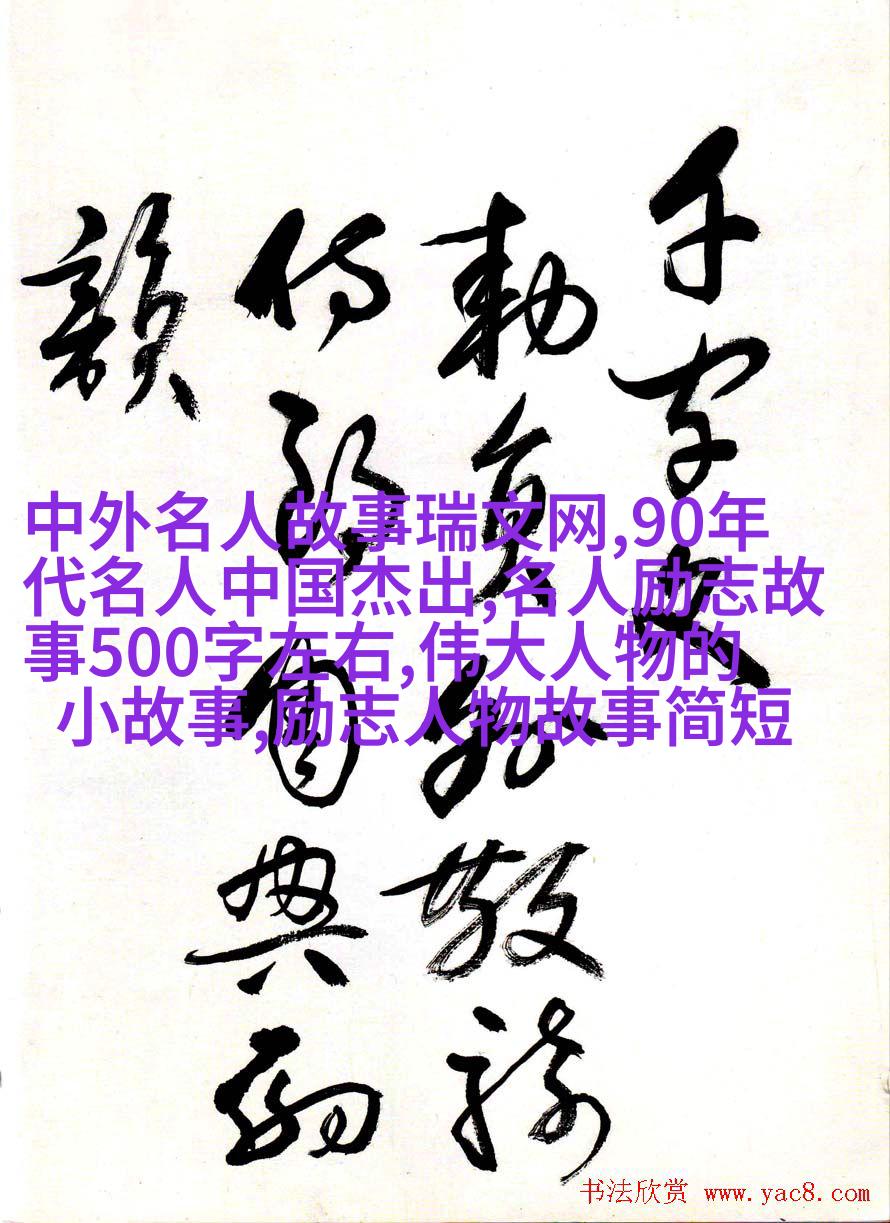 千字文
勅員外散騎
侍郎周興嗣
韻
中外名人故事瑞文网,90年
代名人中国杰出,名人励志故
事500字左右,伟大人物的
小故事,励志人物故事简短
书法欣赏 www.yac8.com